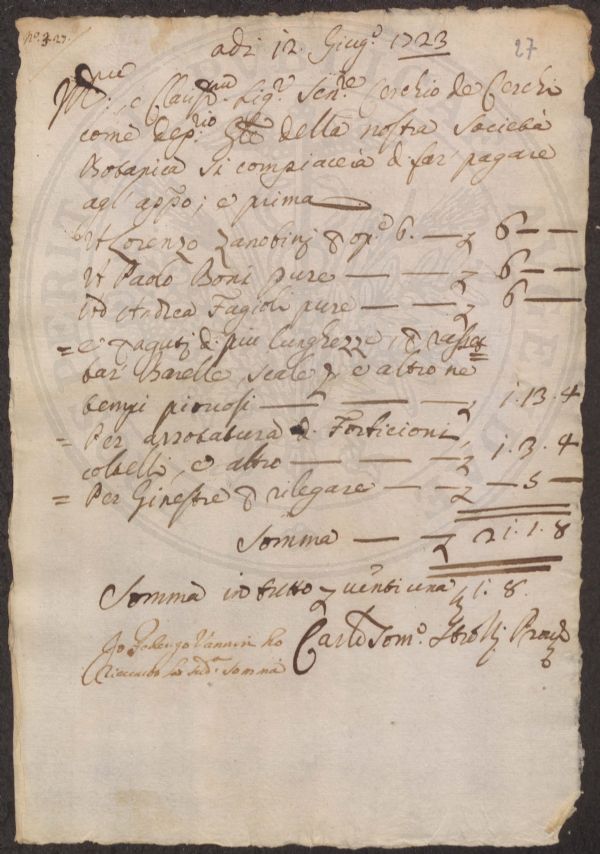 n.º 3. 27.
adi 12. Giug.º 1723
27
e Clariss.mo Sig.r Sen.re Cerchio de Cerchi
come dep.rio Gle della nostra Società
Botanica si compiacerà d. far' pagare
agl' app.o; e prima
A Lorenzo Zanobinj p op.e 6. — 6 —
A Paolo Boni pure — 6 —
Ad Andrea Fagioli pure — 6 —
= e p aguti d. più lunghezze, p
bar' Barelle, scale p, e altro ne
tempi piovosi — 1. 13. 4
= Per arrotatura d. Forticioni
coltelli, e altro — 1. 3. 4
= Per Ginestre p rilegare — 5 —
Somma — 21. 1. 8
Somma in tutto venti una 1. 8.
Io Lorenzo Vannini ho
riceuuto la sud.a somma
Carlo Tom.o Strozzj Prov.e